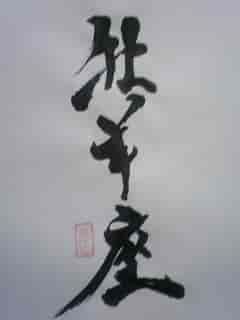 牡羊座